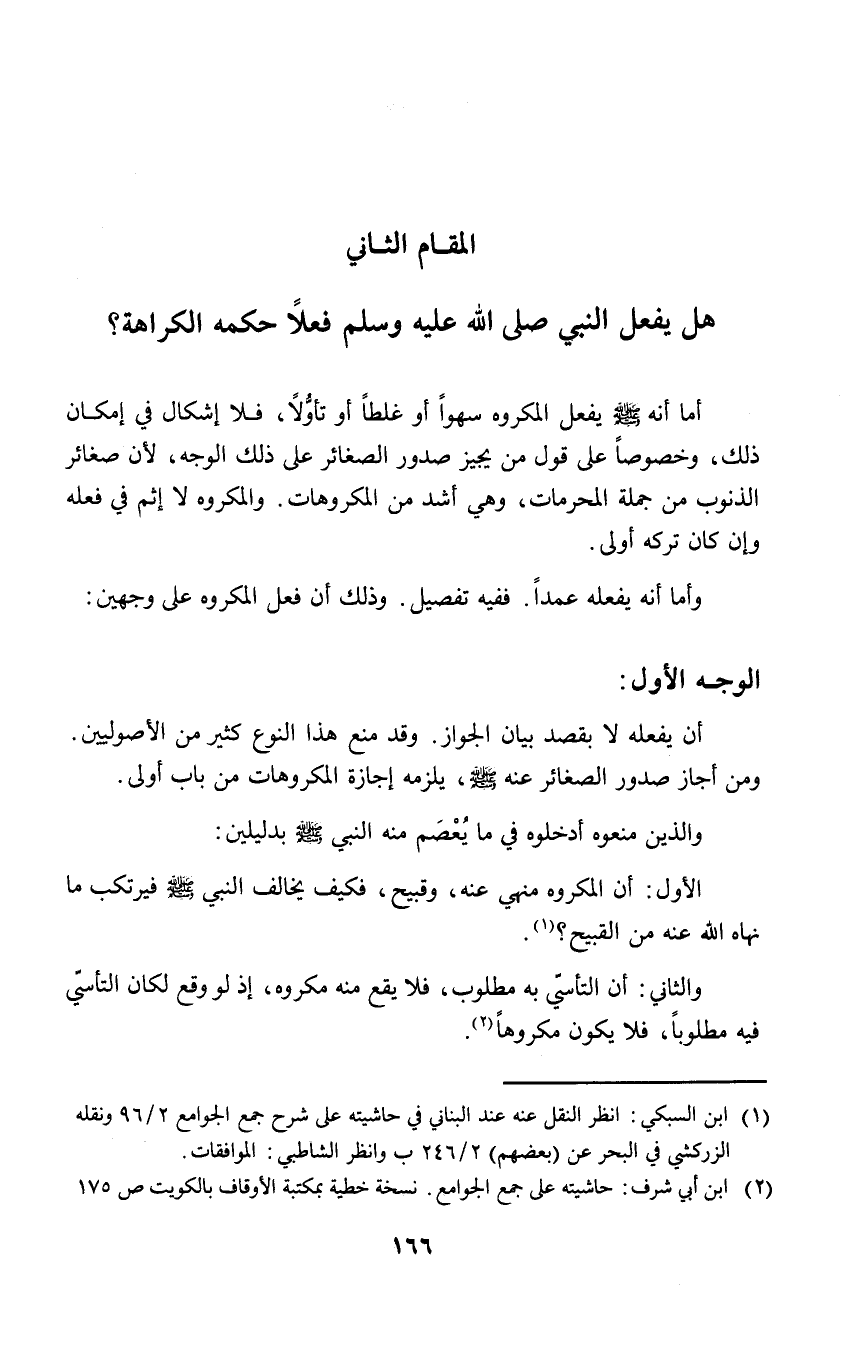 المقـام الثـاني
هل يفعل النبي صلى الله عليه وسلم فعلاً حكمه الكراهة؟
أما أنه ﷺ يفعل المكروه سهواً أو غلطاً أو تأوُّلاً، فـلا إشكال في إمكـان
ذلك، وخصوصاً على قول من يجيز صدور الصغائر على ذلك الوجه، لأن صغائر
الذنوب من جملة المحرمات، وهي أشد من المكروهات. والمكروه لا إثم في فعله
وإن كان تركه أولى.
وأما أنه يفعله عمداً. ففيه تفصيل. وذلك أن فعل المكروه على وجهين:
الوجـه الأول:
أن يفعله لا بقصد بيان الجواز. وقد منع هذا النوع كثير من الأصوليين.
ومن أجاز صدور الصغائر عنه ﷺ، يلزمه إجازة المكروهات من باب أولى.
والذين منعوه أدخلوه في ما يُعْصَم منه النبي ﷺ بدليلين:
الأول: أن المكروه منهي عنه، وقبيح، فكيف يخالف النبي ﷺ فيرتكب ما
نهاه الله عنه من القبيح؟(١).
والثاني: أن التأسّي به مطلوب، فلا يقع منه مكروه، إذ لو وقع لكان التأسّي
فيه مطلوباً، فلا يكون مكروهاً(٢).
(١) ابن السبكي: انظر النقل عنه عند البناني في حاشيته على شرح جمع الجوامع ٩٦/٢ ونقله
الزركشي في البحر عن (بعضهم) ٢٤٦/٢ ب وانظر الشاطبي: الموافقات.
(٢) ابن أبي شرف: حاشيته على جمع الجوامع. نسخة خطية بمكتبة الأوقاف بالكويت ص ١٧٥
١٦٦